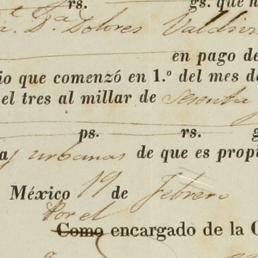 rs. gs. que h
a. Da. Dolores Valdivi
en pago de
io que comenzó en 1.º del mes de
el tres al millar de Sesenta y
ps. rs. g
a y urbanas de que es propi
México 19 de Febrero
Por el
Como encargado de la C